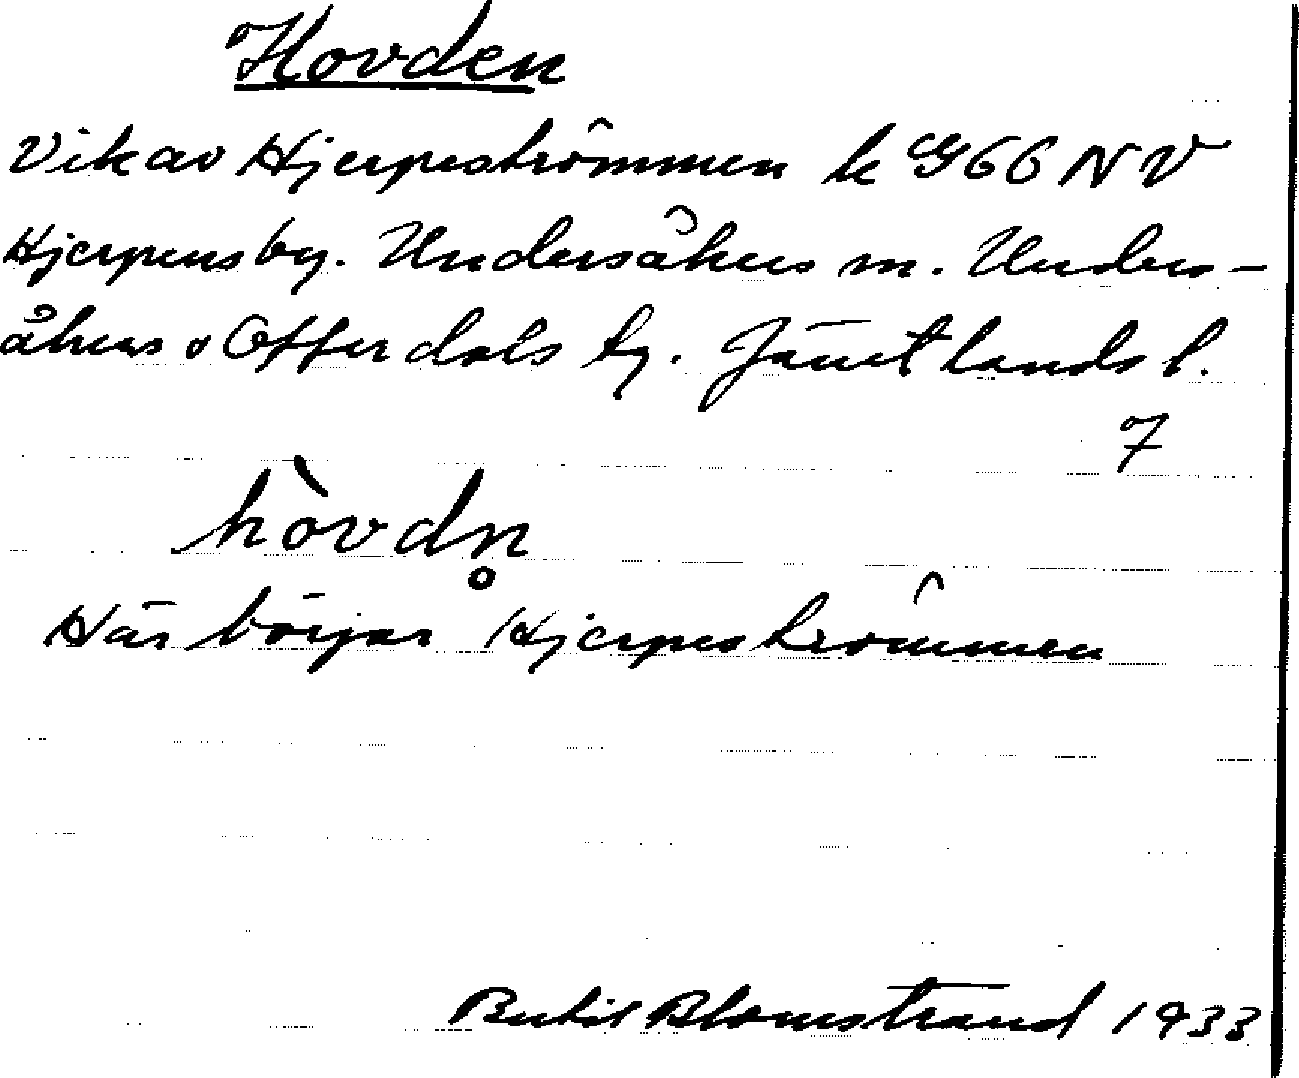 Hovden
Vik av Hjerpeströmmen k G66 NV
Hjerpens by. Undersåkers sn. Unders-
åkers o Offerdals tg. Jämtlands l.
7
hòvdn̥
Här börjar Hjerpeströmmen
Bertil Blomstrand 1933